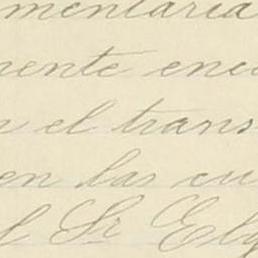 mentaria
mente enc
n el trans
en las cu
l Sr Elg